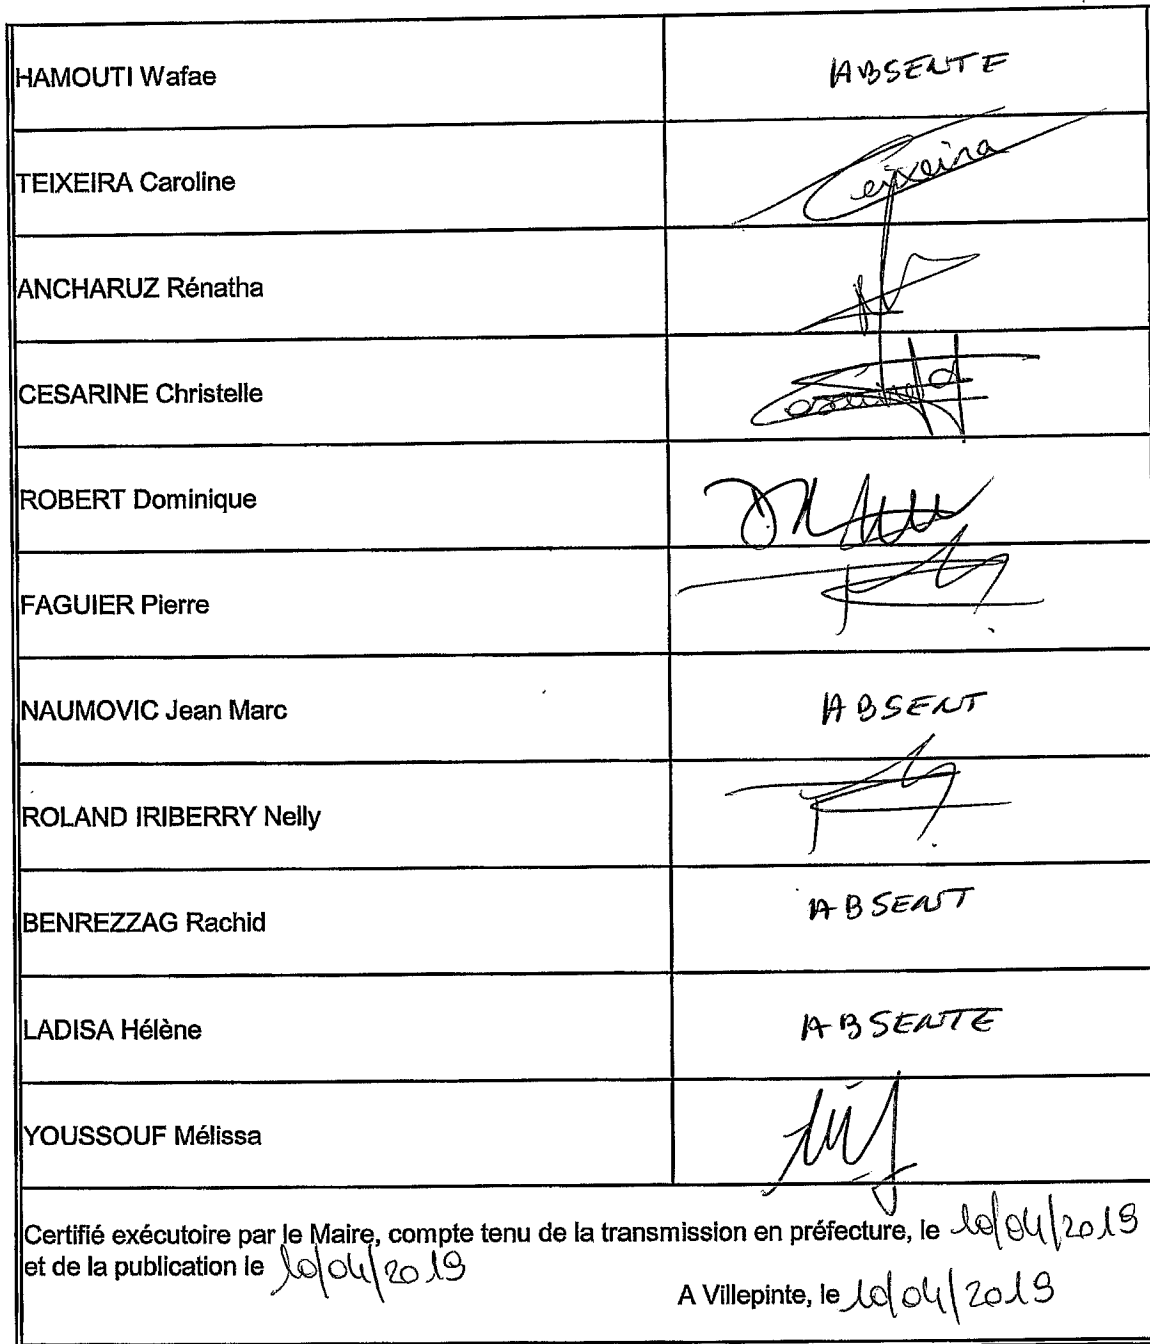 HAMOUTI Wafae ABSENTE
TEIXEIRA Caroline Teixeira
ANCHARUZ Rénatha
CESARINE Christelle
ROBERT Dominique
FAGUIER Pierre
NAUMOVIC Jean Marc ABSENT
ROLAND IRIBERRY Nelly
BENREZZAG Rachid ABSENT
LADISA Hélène ABSENTE
YOUSSOUF Mélissa
Certifié exécutoire par le Maire, compte tenu de la transmission en préfecture, le 10/04/2019
et de la publication le 10/04/2019
A Villepinte, le 10/04/2019